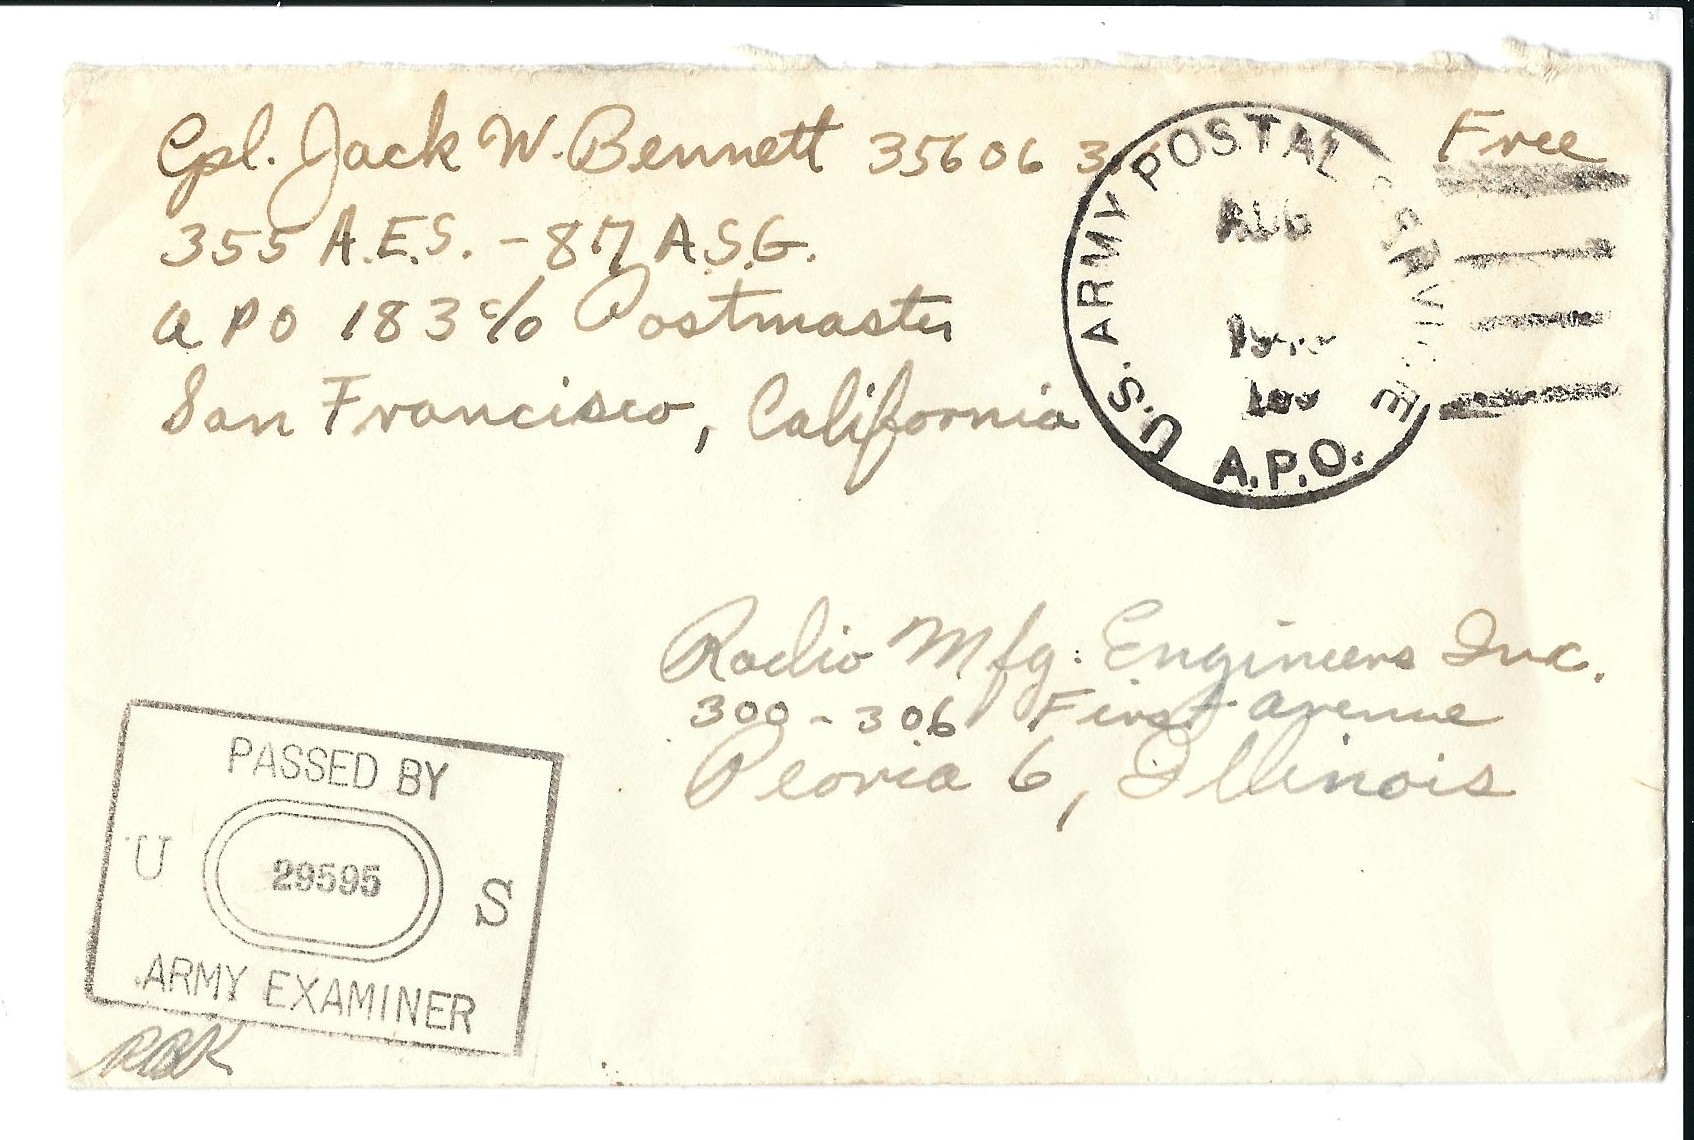 Cpl. Jack W. Bennett 35606
355 A.E.S. - 87 A.S.G.
A P O 183 c/o Postmaster
San Francisco, California
Free
U.S. ARMY POSTAL SERVICE
AUG
A.P.O.
Radio Mfg. Engineers Inc.
300-306 First Avenue
Peoria 6, Illinois
PASSED BY
U 29595 S
ARMY EXAMINER